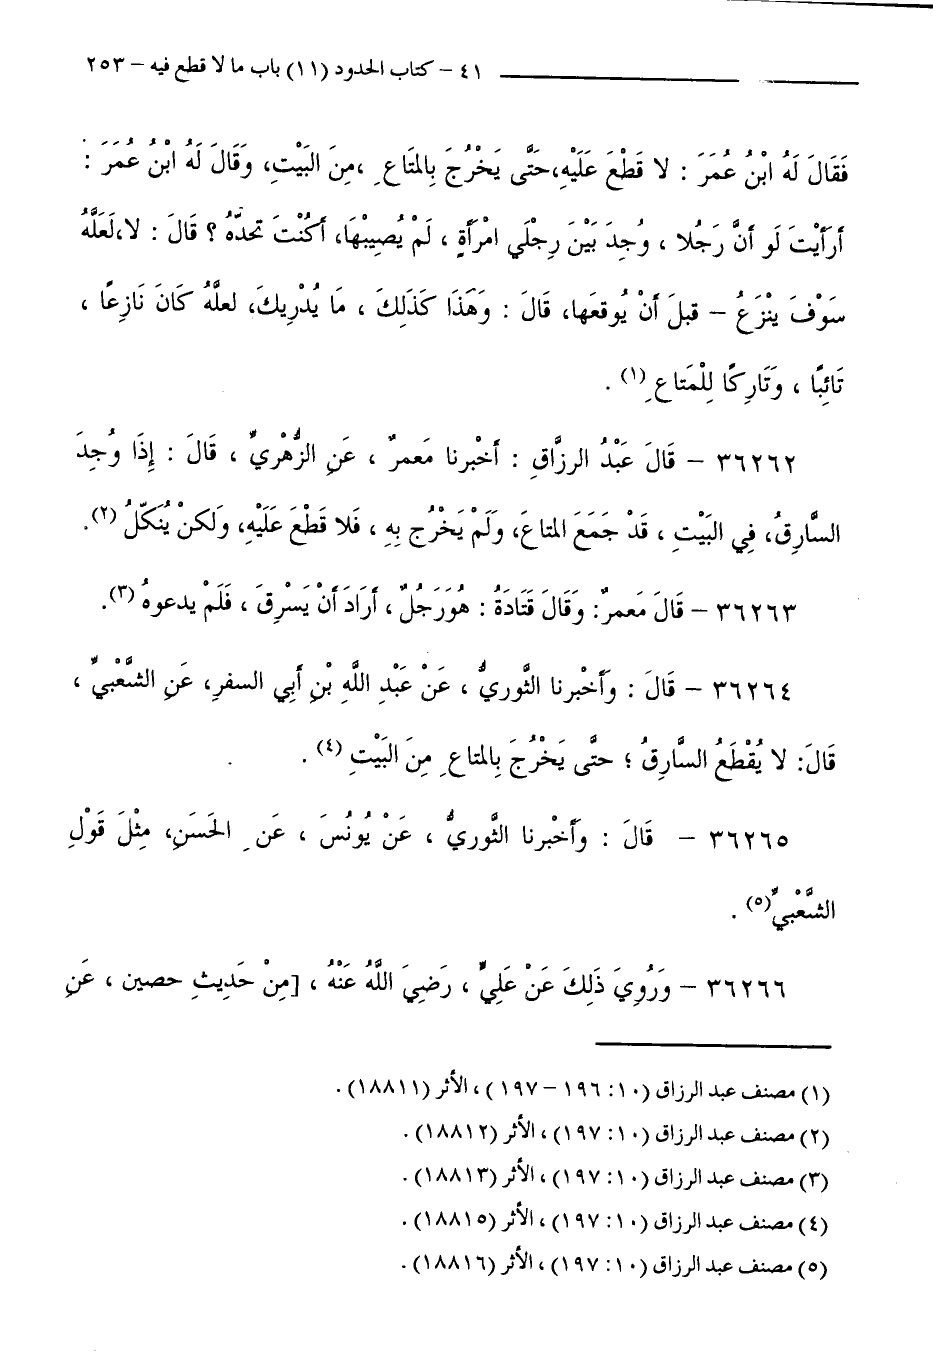 ٤١ - كتاب الحدود (١١) باب ما لا قطع فيه - ٢٥٣
فَقَالَ لَهُ ابْنُ عُمَرَ : لا قَطْعَ عَلَيْهِ،حَتَّى يَخْرُجَ بِالمَتَاعِ ،مِنَ البَيْتِ، وَقَالَ لَهُ ابْنُ عُمَرَ :
أرَأَيْتَ لَو أنَّ رَجُلا ، وُجِدَ بَيْنَ رِجْلَي امْرأةٍ ، لَمْ يُصِيبْهَا، أكُنْتَ تحدّهُ ؟ قالَ : لا،لَعَلَّهُ
سَوْفَ يَنْزَعُ - قبلَ أنْ يُوقعَها، قَالَ : وَهَذَا كَذَلِكَ ، مَا يُدْرِيكَ، لعلَّهُ كَانَ نَازِعًا ،
تَائِبًا ، وَتَارِكًا لِلْمَتاعِ (١) .
٣٦٢٦٢ - قَالَ عَبْدُ الرزَّاقِ : أخْبرنا مَعمرٌ ، عَنِ الزُّهْريِّ ، قَالَ : إذَا وُجِدَ
السَّارِقُ، فِي البَيْتِ ، قَدْ جَمَعَ المتاعَ، وَلَمْ يَخْرُج بِهِ ، فَلا قَطْعَ عَلَيْهِ، وَلكنْ يُنَكّلُ (٢).
٣٦٢٦٣ - قَالَ مَعمرٌ: وَقَالَ قَتَادَةُ : هُوَرَجُلٌ ، أرَادَ أنْ يَسْرِقَ ، فَلَمْ يدعوهُ (٣).
٣٦٢٦٤ - قَالَ : وَأخْبرنا الثَّوريُّ ، عَنْ عَبْدِ اللَّهِ بْنِ أبِي السفرِ، عَنِ الشَّعْبيِّ ،
قَالَ: لا يُقْطَعُ السَّارِقُ ؛ حتَّى يَخْرُجَ بِالمتاعِ مِنَ البَيْتِ (٤) .
٣٦٢٦٥ - قَالَ : وأَخْبرنا الثَّوريُّ ، عَنْ يُونُسَ ، عَنِ الحَسَنِ، مِثْلَ قَوْلِ
الشَّعْبيِّ(٥) .
٣٦٢٦٦ - وَرُوِيَ ذَلِكَ عَنْ عَلِيٍّ ، رَضِيَ اللَّهُ عَنْهُ ، [مِنْ حَدِيثِ حصين ، عَنِ
(١) مصنف عبد الرزاق (١٠: ١٩٦ - ١٩٧ ) ، الأثر (١٨٨١١) .
(٢) مصنف عبد الرزاق (١٠: ١٩٧) ، الأثر (١٨٨١٢) .
(٣) مصنف عبد الرزاق (١٠: ١٩٧) ، الأثر (١٨٨١٣) .
(٤) مصنف عبد الرزاق (١٠: ١٩٧) ، الأثر (١٨٨١٥) .
(٥) مصنف عبد الرزاق (١٠: ١٩٧) ، الأثر (١٨٨١٦) .